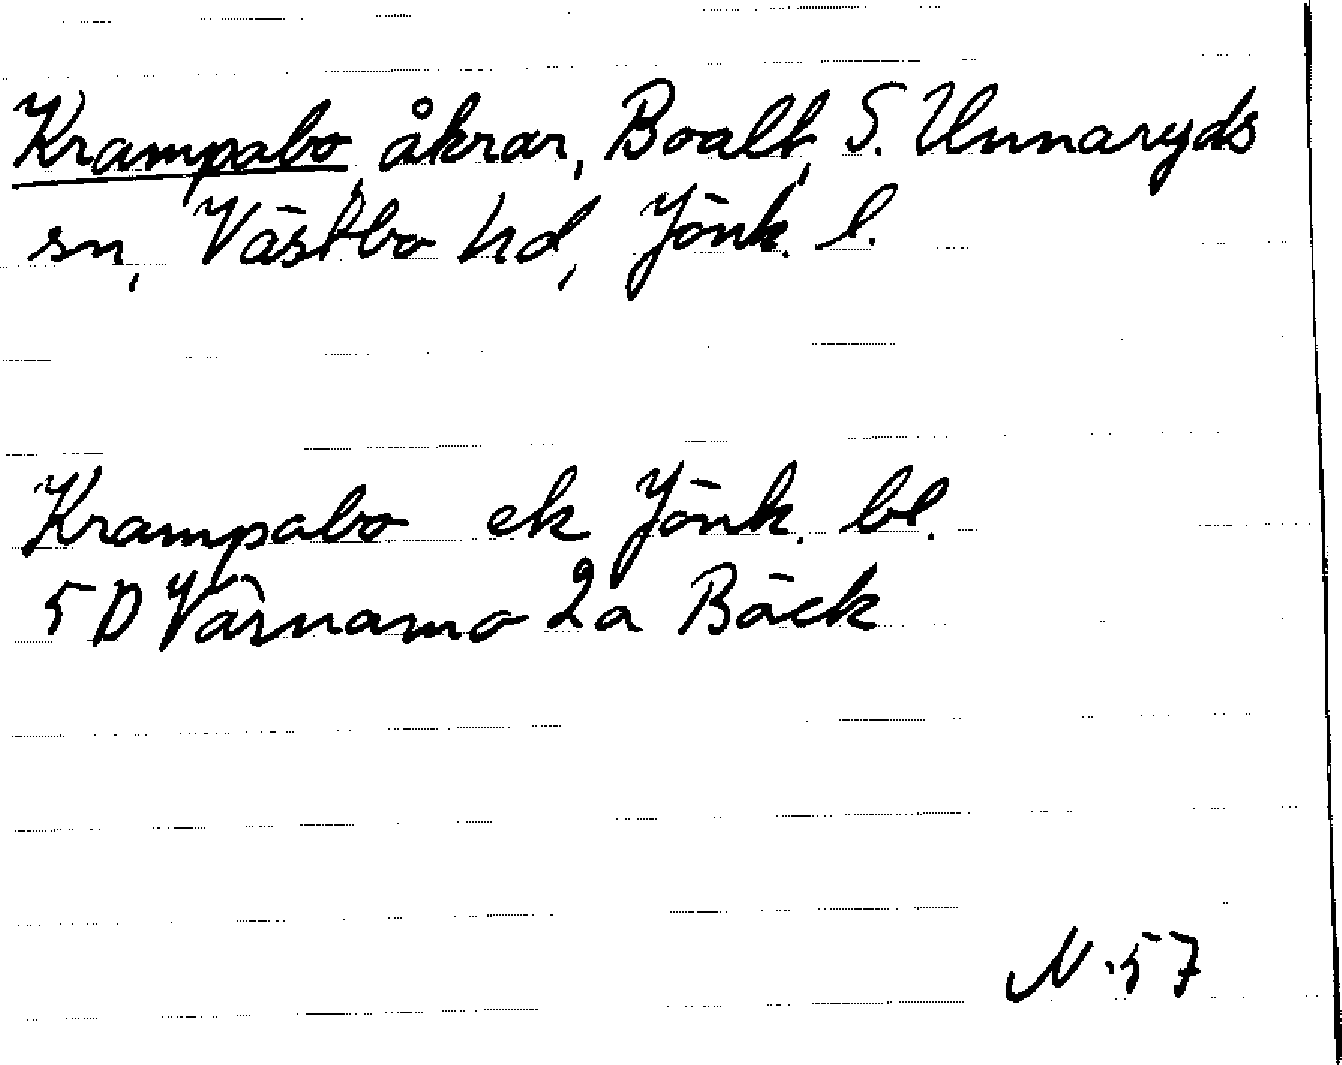 Krampabo, åkrar, Boalt, S. Unnaryds
sn, Västbo hd, Jönk. l.
Krampabo ek Jönk. bl.
5 D Värnamo 2a Bäck
N. 57